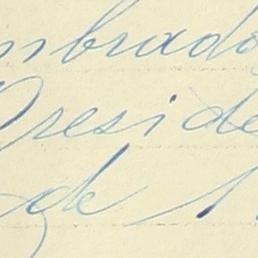 mbrado
Preside
de